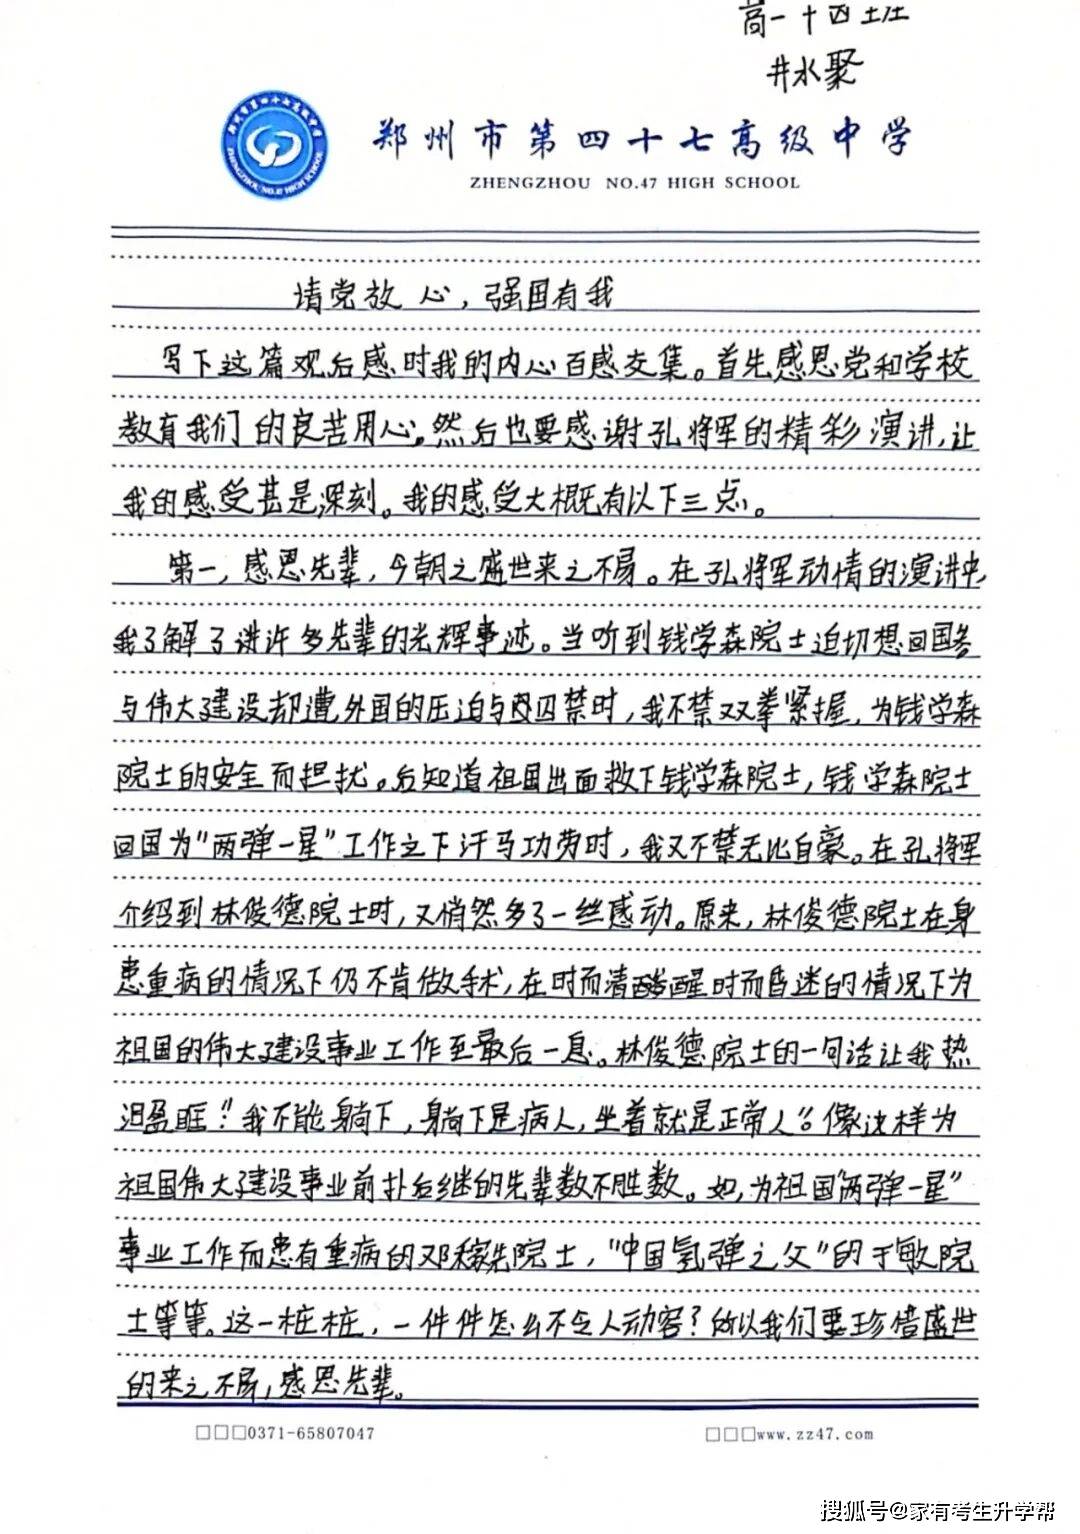 高一十四班
井水聚
郑州市第四十七高级中学
ZHENGZHOU NO.47 HIGH SCHOOL
请党放心，强国有我
写下这篇观后感时我的内心百感交集。首先感恩党和学校
教育我们的良苦用心。然后也要感谢孔将军的精彩演讲，让
我的感受甚是深刻。我的感受大概有以下三点。
第一，感恩先辈，今朝之盛世来之不易。在孔将军动情的演讲中，
我了解了许多先辈的光辉事迹。当听到钱学森院士迫切想回国参
与伟大建设却遭外国的压迫与囚禁时，我不禁双拳紧握，为钱学森
院士的安全而担扰。后知道祖国出面救下钱学森院士，钱学森院士
回国为“两弹一星”工作立下汗马功劳时，我又不禁无比自豪。在孔将军
介绍到林俊德院士时，又悄然多了一丝感动。原来，林俊德院士在身
患重病的情况下仍不肯做手术，在时而清醒时而昏迷的情况下为
祖国的伟大建设事业工作至最后一息。林俊德院士的一句话让我热
泪盈眶：“我不能躺下，躺下是病人，坐着就是正常人”。像这样为
祖国伟大建设事业前扑后继的先辈数不胜数。如，为祖国“两弹一星”
事业工作而患有重病的邓稼先院士，“中国氢弹之父”的于敏院
士等等。这一桩桩，一件件怎么不令人动容？所以我们要珍惜盛世
的来之不易，感恩先辈。
□□□0371-65807047
□□□www.zz47.com
搜狐号@家有考生升学帮